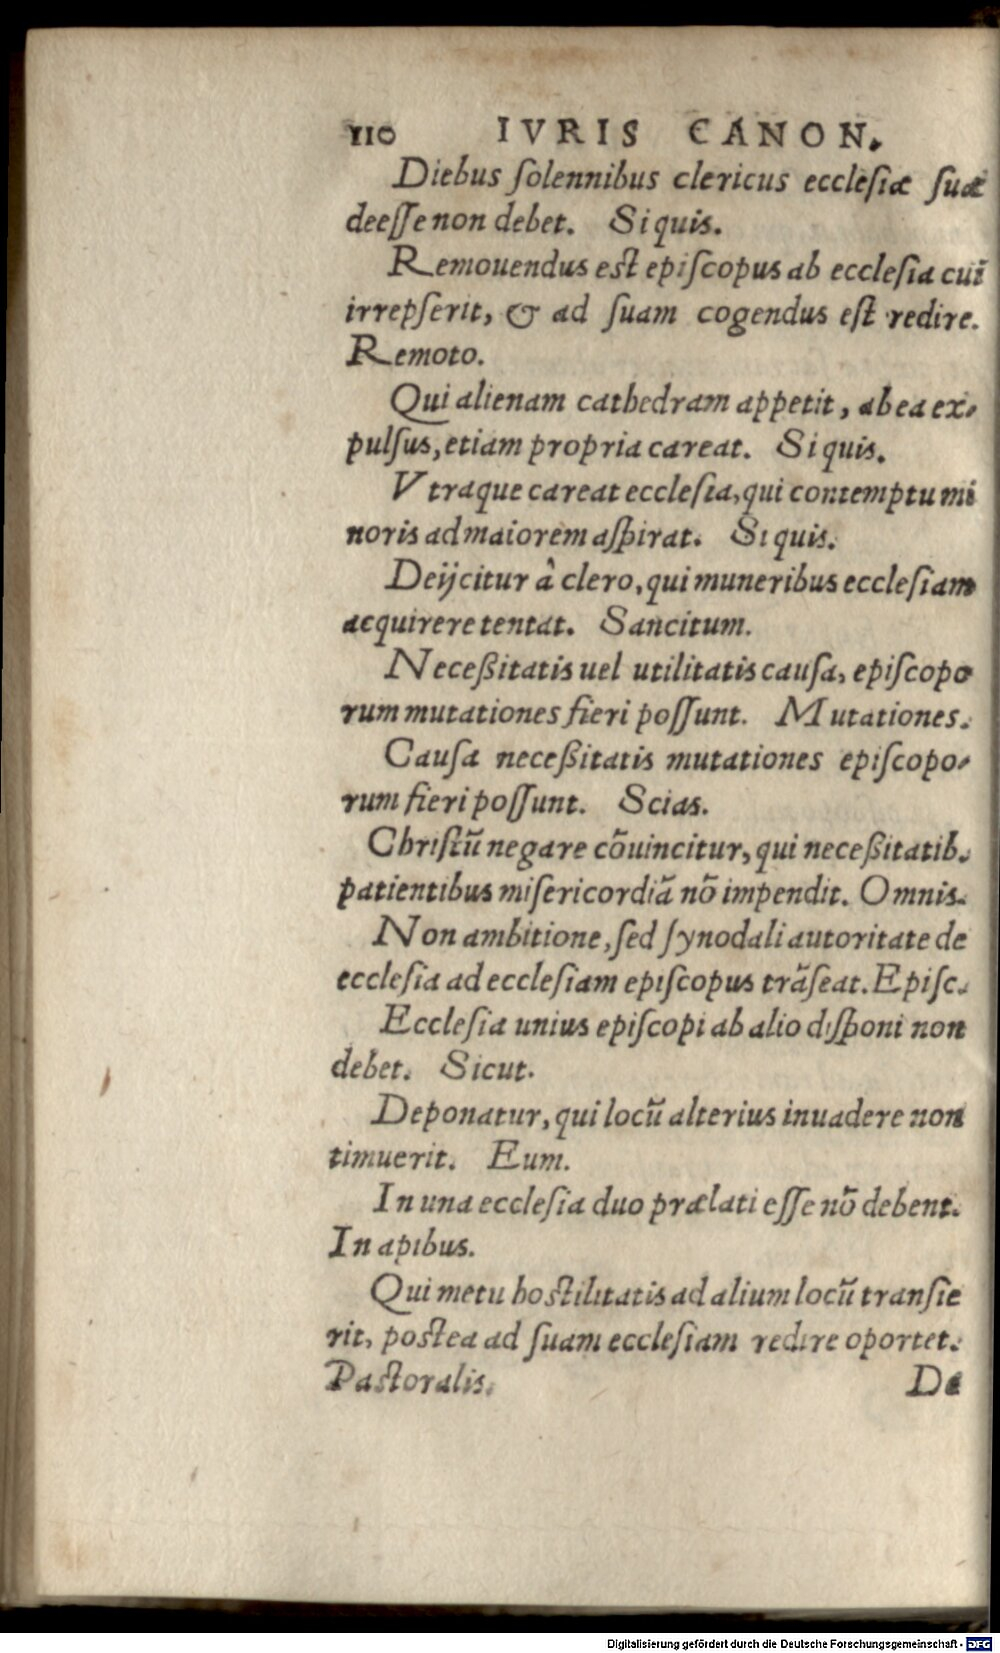 110 IVRIS CANON.
Diebus ſolennibus clericus eccleſiæ ſuæ
deeſſe non debet. Si quis.
Remouendus est epiſcopus ab eccleſia cuĩ
irrepſerit, & ad ſuam cogendus eſt redire.
Remoto.
Qui alienam cathedram appetit, ab ea ex-
pulſus, etiam propria careat. Si quis.
Vtraque careat eccleſia, qui contemptu mi
noris ad maiorem aſpirat. Si quis.
Deijcitur à clero, qui muneribus eccleſiam
acquirere tentat. Sancitum.
Neceßitatis uel utilitatis cauſa, epiſcopo
rum mutationes fieri poſſunt. Mutationes.
Cauſa neceßitatis mutationes epiſcopo-
rum fieri poſſunt. Scias.
Chriſtũ negare cõuincitur, qui neceßitatib.
patientibus miſericordiã nõ impendit. Omnis.
Non ambitione, ſed ſynodali autoritate de
eccleſia ad eccleſiam epiſcopus trãſeat. Epiſc.
Eccleſia unius epiſcopi ab alio diſponi non
debet. Sicut.
Deponatur, qui locũ alterius inuadere non
timuerit. Eum.
In una eccleſia duo prælati eſſe nõ debent.
In apibus.
Qui metu hostilitatis ad alium locũ tranſie
rit, postea ad ſuam eccleſiam redire oportet.
Pastoralis. De
Digitalisierung gefördert durch die Deutsche Forschungsgemeinschaft - DFG